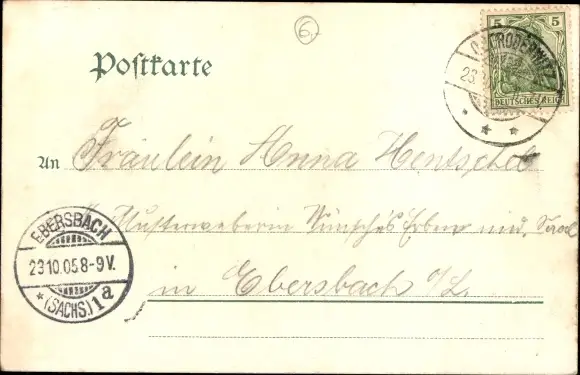 6
5
DEUTSCHES REICH
OBERODERWITZ
23.
Postkarte
An Fräulein Anna Hentschel
Musterweberin Wünsche's Erben
in Ebersbach i/S.
EBERSBACH
23 10 05 8-9V.
* (SACHS.) 1a